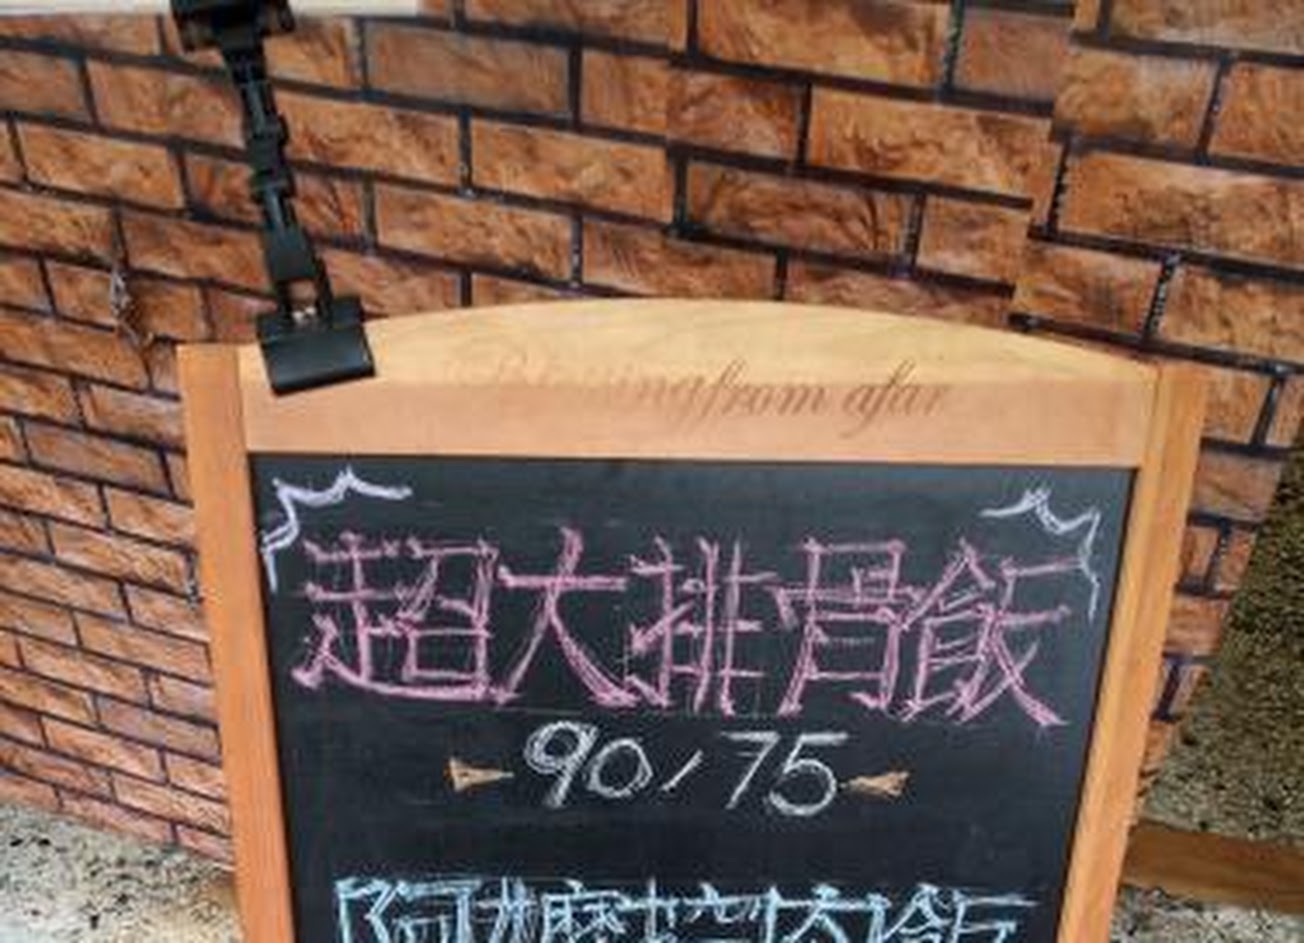 Blessing from afar
超大排骨飯
90/75